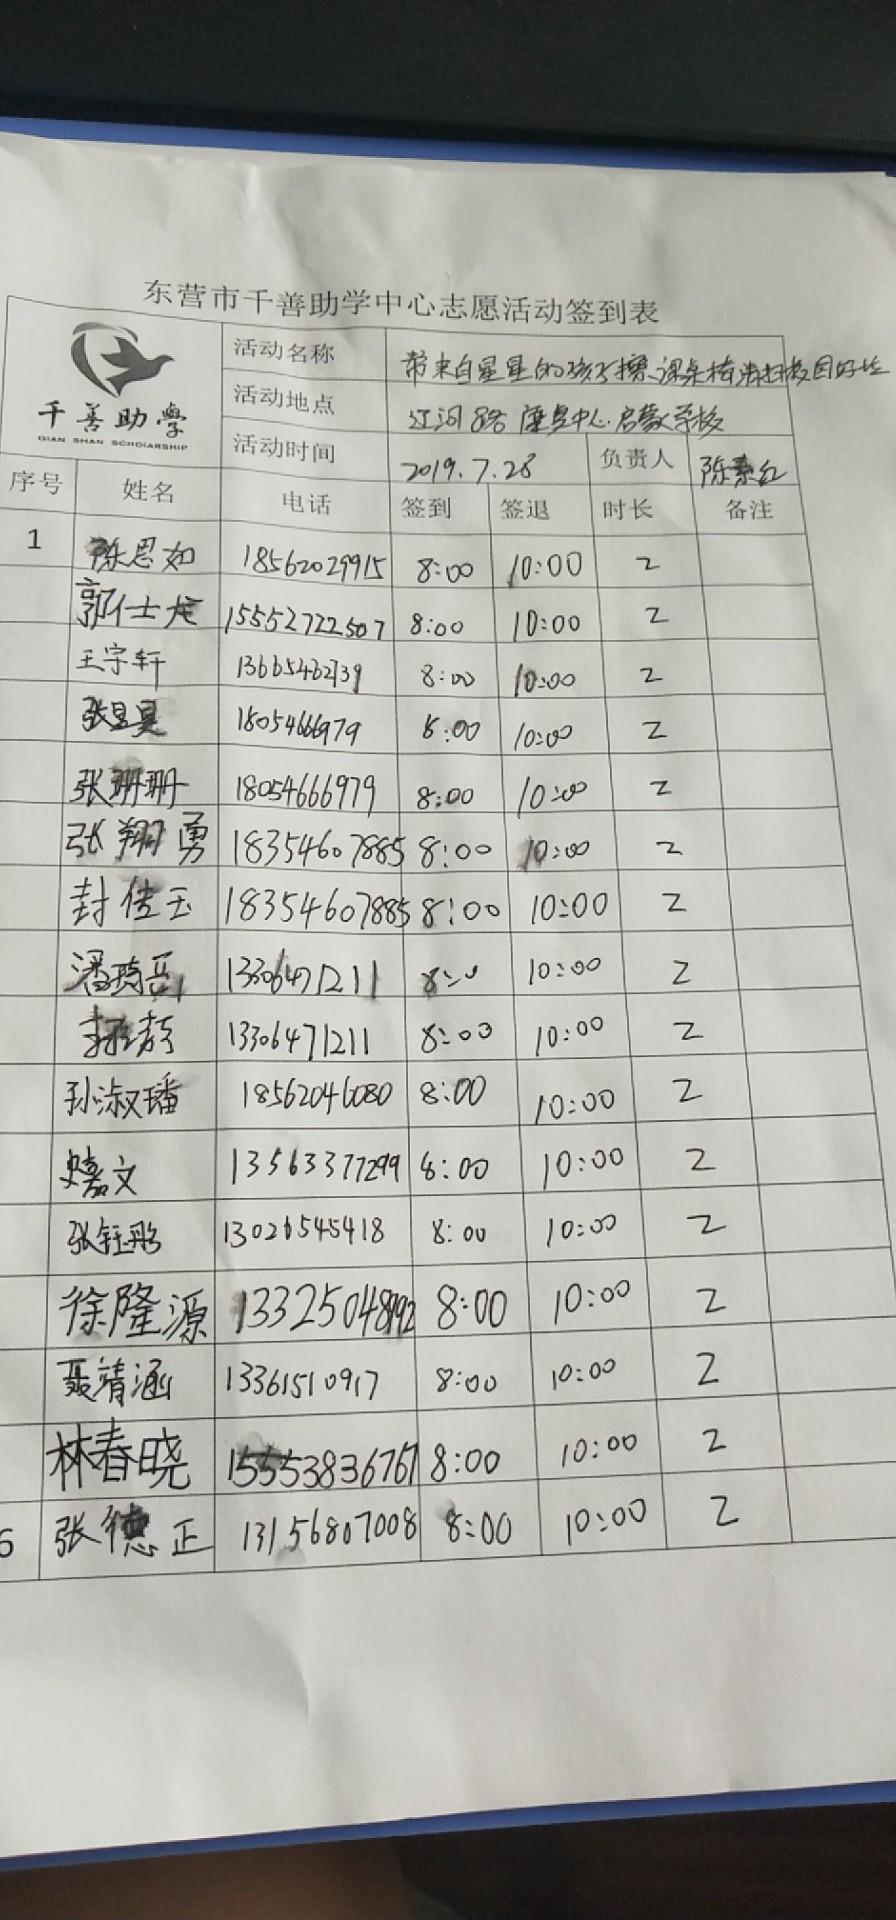 东营市千善助学中心志愿活动签到表
千善助學
QIAN SHAN SCHOLARSHIP
活动名称 带来自星星的孩子擦课桌椅清扫校园
活动地点 辽河路 康复中心.启蒙学校
活动时间 2019.7.28 负责人 陈素红
序号 姓名 电话 签到 签退 时长 备注
1 陈思如 18562029915 8:00 10:00 2
郭仕龙 15552722507 8:00 10:00 2
王宇轩 8:00 10:00 2
张昱昊 18054666979 8:00 10:00 2
张珊珊 18054666979 8:00 10:00 2
张翔勇 18354607885 8:00 10:00 2
封传玉 18354607885 8:00 10:00 2
潘琦 13306471211 10:00 2
13306471211 8:00 10:00 2
孙淑璠 18562046080 8:00 10:00 2
史嘉文 13563377299 8:00 10:00 2
张钰彤 13026545418 8:00 10:00 2
徐隆源 8:00 10:00 2
聂靖涵 13361510917 8:00 10:00 2
林春晓 15553836767 8:00 10:00 2
6 张德正 13156807008 8:00 10:00 2